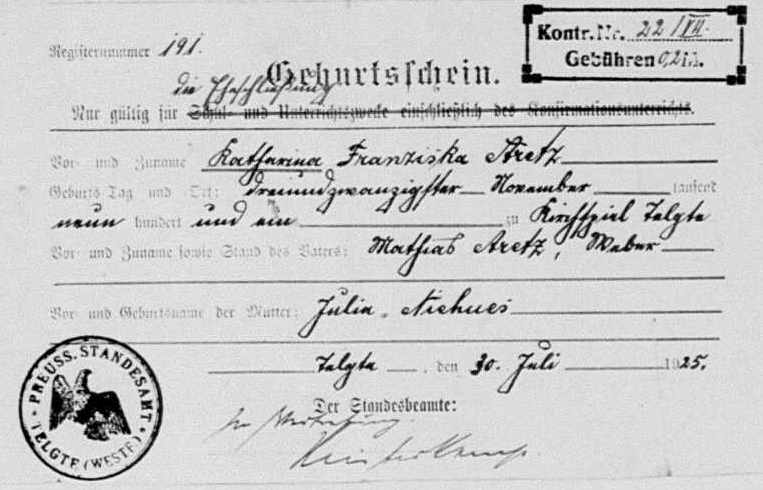 Kontr. Nr. 22/VII.
Gebühren 0,2 M.
Registernummer 191.
Geburtsschein.
die Eheschließung
Nur gültig für Schul- und Unterrichtszwecke einschließlich des Konfirmationsunterrichts.
Vor- und Zuname Katharina Franziska Aretz
Geburts-Tag und Ort: Dreiundzwanzigster November tausend
neun hundert und ein zu Kirchspiel Telgte
Vor- und Zuname sowie Stand des Vaters: Mathias Aretz, Weber
Vor- und Geburtsname der Mutter: Julia Niehues
Telgte, den 30. Juli 1925.
Der Standesbeamte:
In Vertretung.
PREUSS. STANDESAMT
TELGTE (WESTF.)